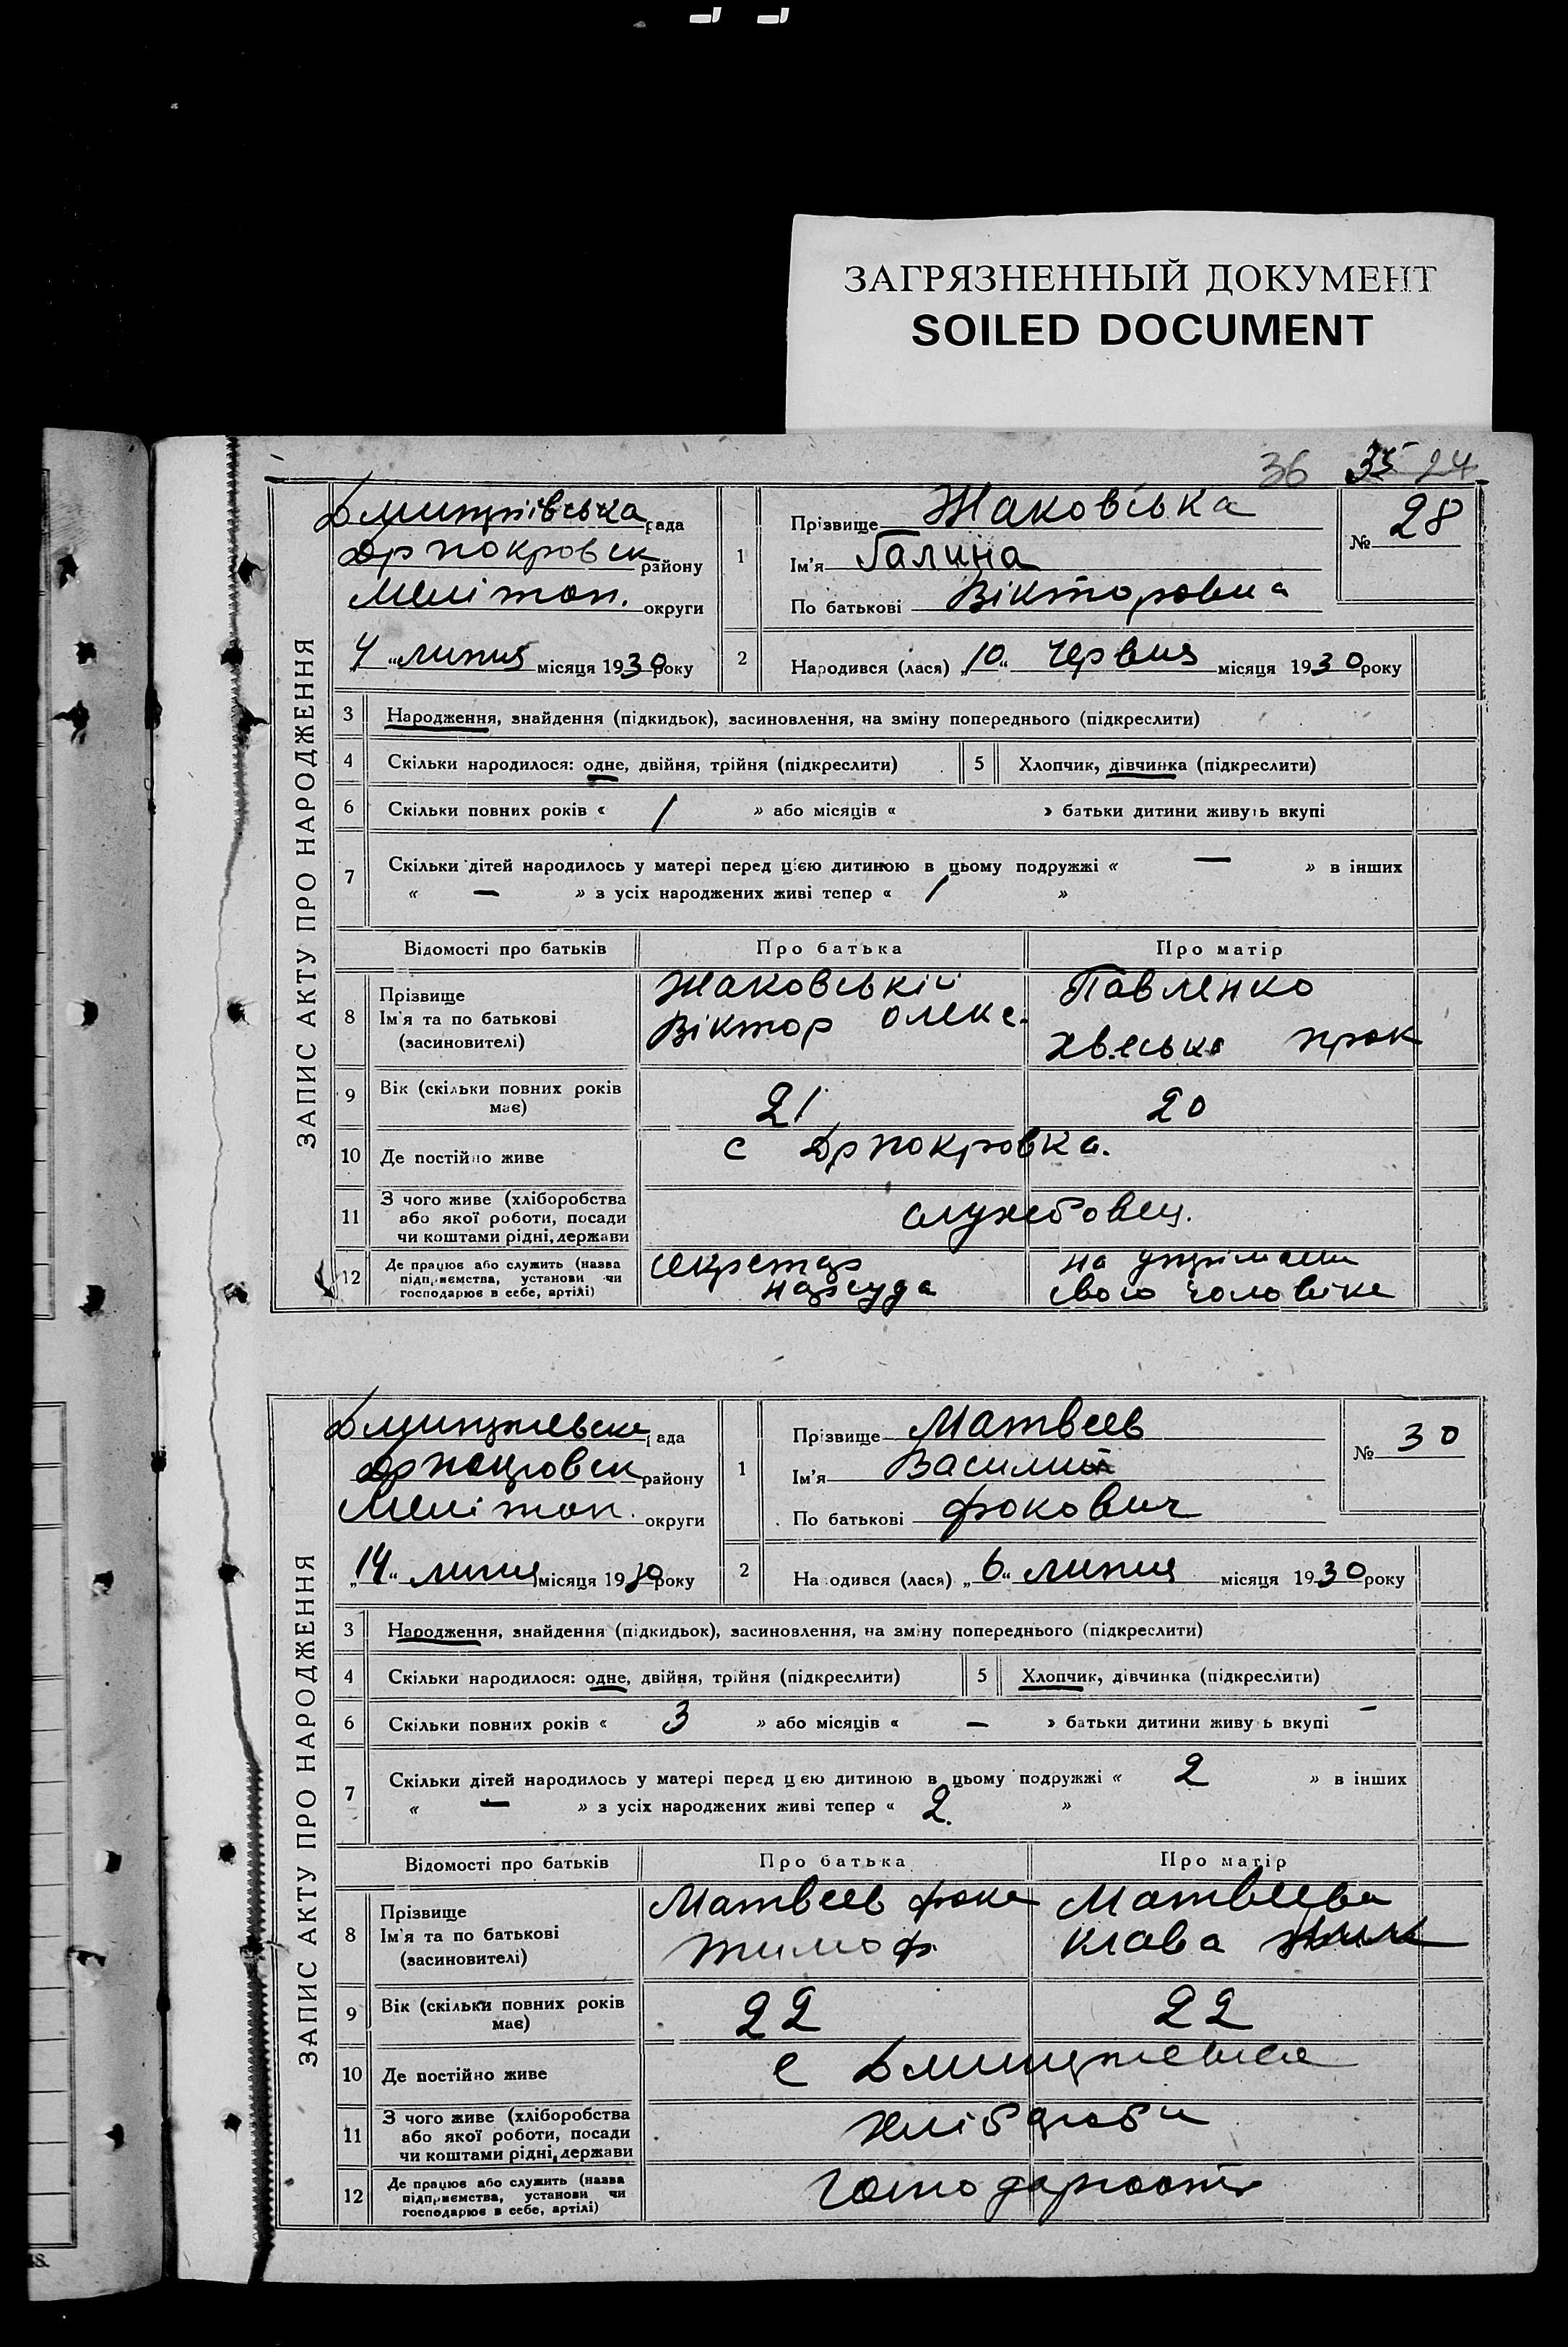 ЗАГРЯЗНЕННЫЙ ДОКУМЕНТ
SOILED DOCUMENT
36 35 24
ЗАПИС АКТУ ПРО НАРОДЖЕННЯ
Дмитрівська рада
Дрпокровск району
Мелітоп. округи
4 „ липня місяця 1930 року
1 Прізвище Жаковська
Ім'я Галина
По батькові Вікторовна
№ 28
2 Народився (лася) „10“ червня місяця 1930 року
3 Народження, знайдення (підкидьок), засиновлення, на зміну попереднього (підкреслити)
4 Скільки народилося: одне, двійня, трійня (підкреслити) 5 Хлопчик, дівчинка (підкреслити)
6 Скільки повних років « 1 » або місяців « » батьки дитини живуть вкупі
7 Скільки дітей народилось у матері перед цією дитиною в цьому подружжі « — » в інших
« — » з усіх народжених живі тепер « 1 »
Відомості про батьків Про батька Про матір
8 Прізвище
Ім'я та по батькові
(засиновителі)
Жаковській
Віктор Олекс.
Павленко
Хвеська Прок
9 Вік (скільки повних років
має) 21 20
10 Де постійно живе с Дрпокровка.
11 З чого живе (хліборобства
або якої роботи, посади
чи коштами рідні, держави
службовец.
12 Де працює або служить (назва
підприємства, установи чи
господарює в себе, артілі)
секретар
нарсуда
на утримані
свого чоловіка
ЗАПИС АКТУ ПРО НАРОДЖЕННЯ
Дмитриевска рада
Дрпокровск району
Мелітоп. округи
„14“ липня місяця 1930 року
1 Прізвище Матвеев
Ім'я Василий
По батькові Фокович
№ 30
2 Народився (лася) „6“ липня місяця 1930 року
3 Народження, знайдення (підкидьок), засиновлення, на зміну попереднього (підкреслити)
4 Скільки народилося: одне, двійня, трійня (підкреслити) 5 Хлопчик, дівчинка (підкреслити)
6 Скільки повних років « 3 » або місяців « — » батьки дитини живуть вкупі —
7 Скільки дітей народилось у матері перед цією дитиною в цьому подружжі « 2 » в інших
« — » з усіх народжених живі тепер « 2. »
Відомості про батьків Про батька Про матір
8 Прізвище
Ім'я та по батькові
(засиновителі)
Матвеев Фока
Тимоф
Матвеева
Клава
9 Вік (скільки повних років
має) 22 22
10 Де постійно живе с
11 З чого живе (хліборобства
або якої роботи, посади
чи коштами рідні, держави
12 Де працює або служить (назва
підприємства, установи чи
господарює в себе, артілі)
48.